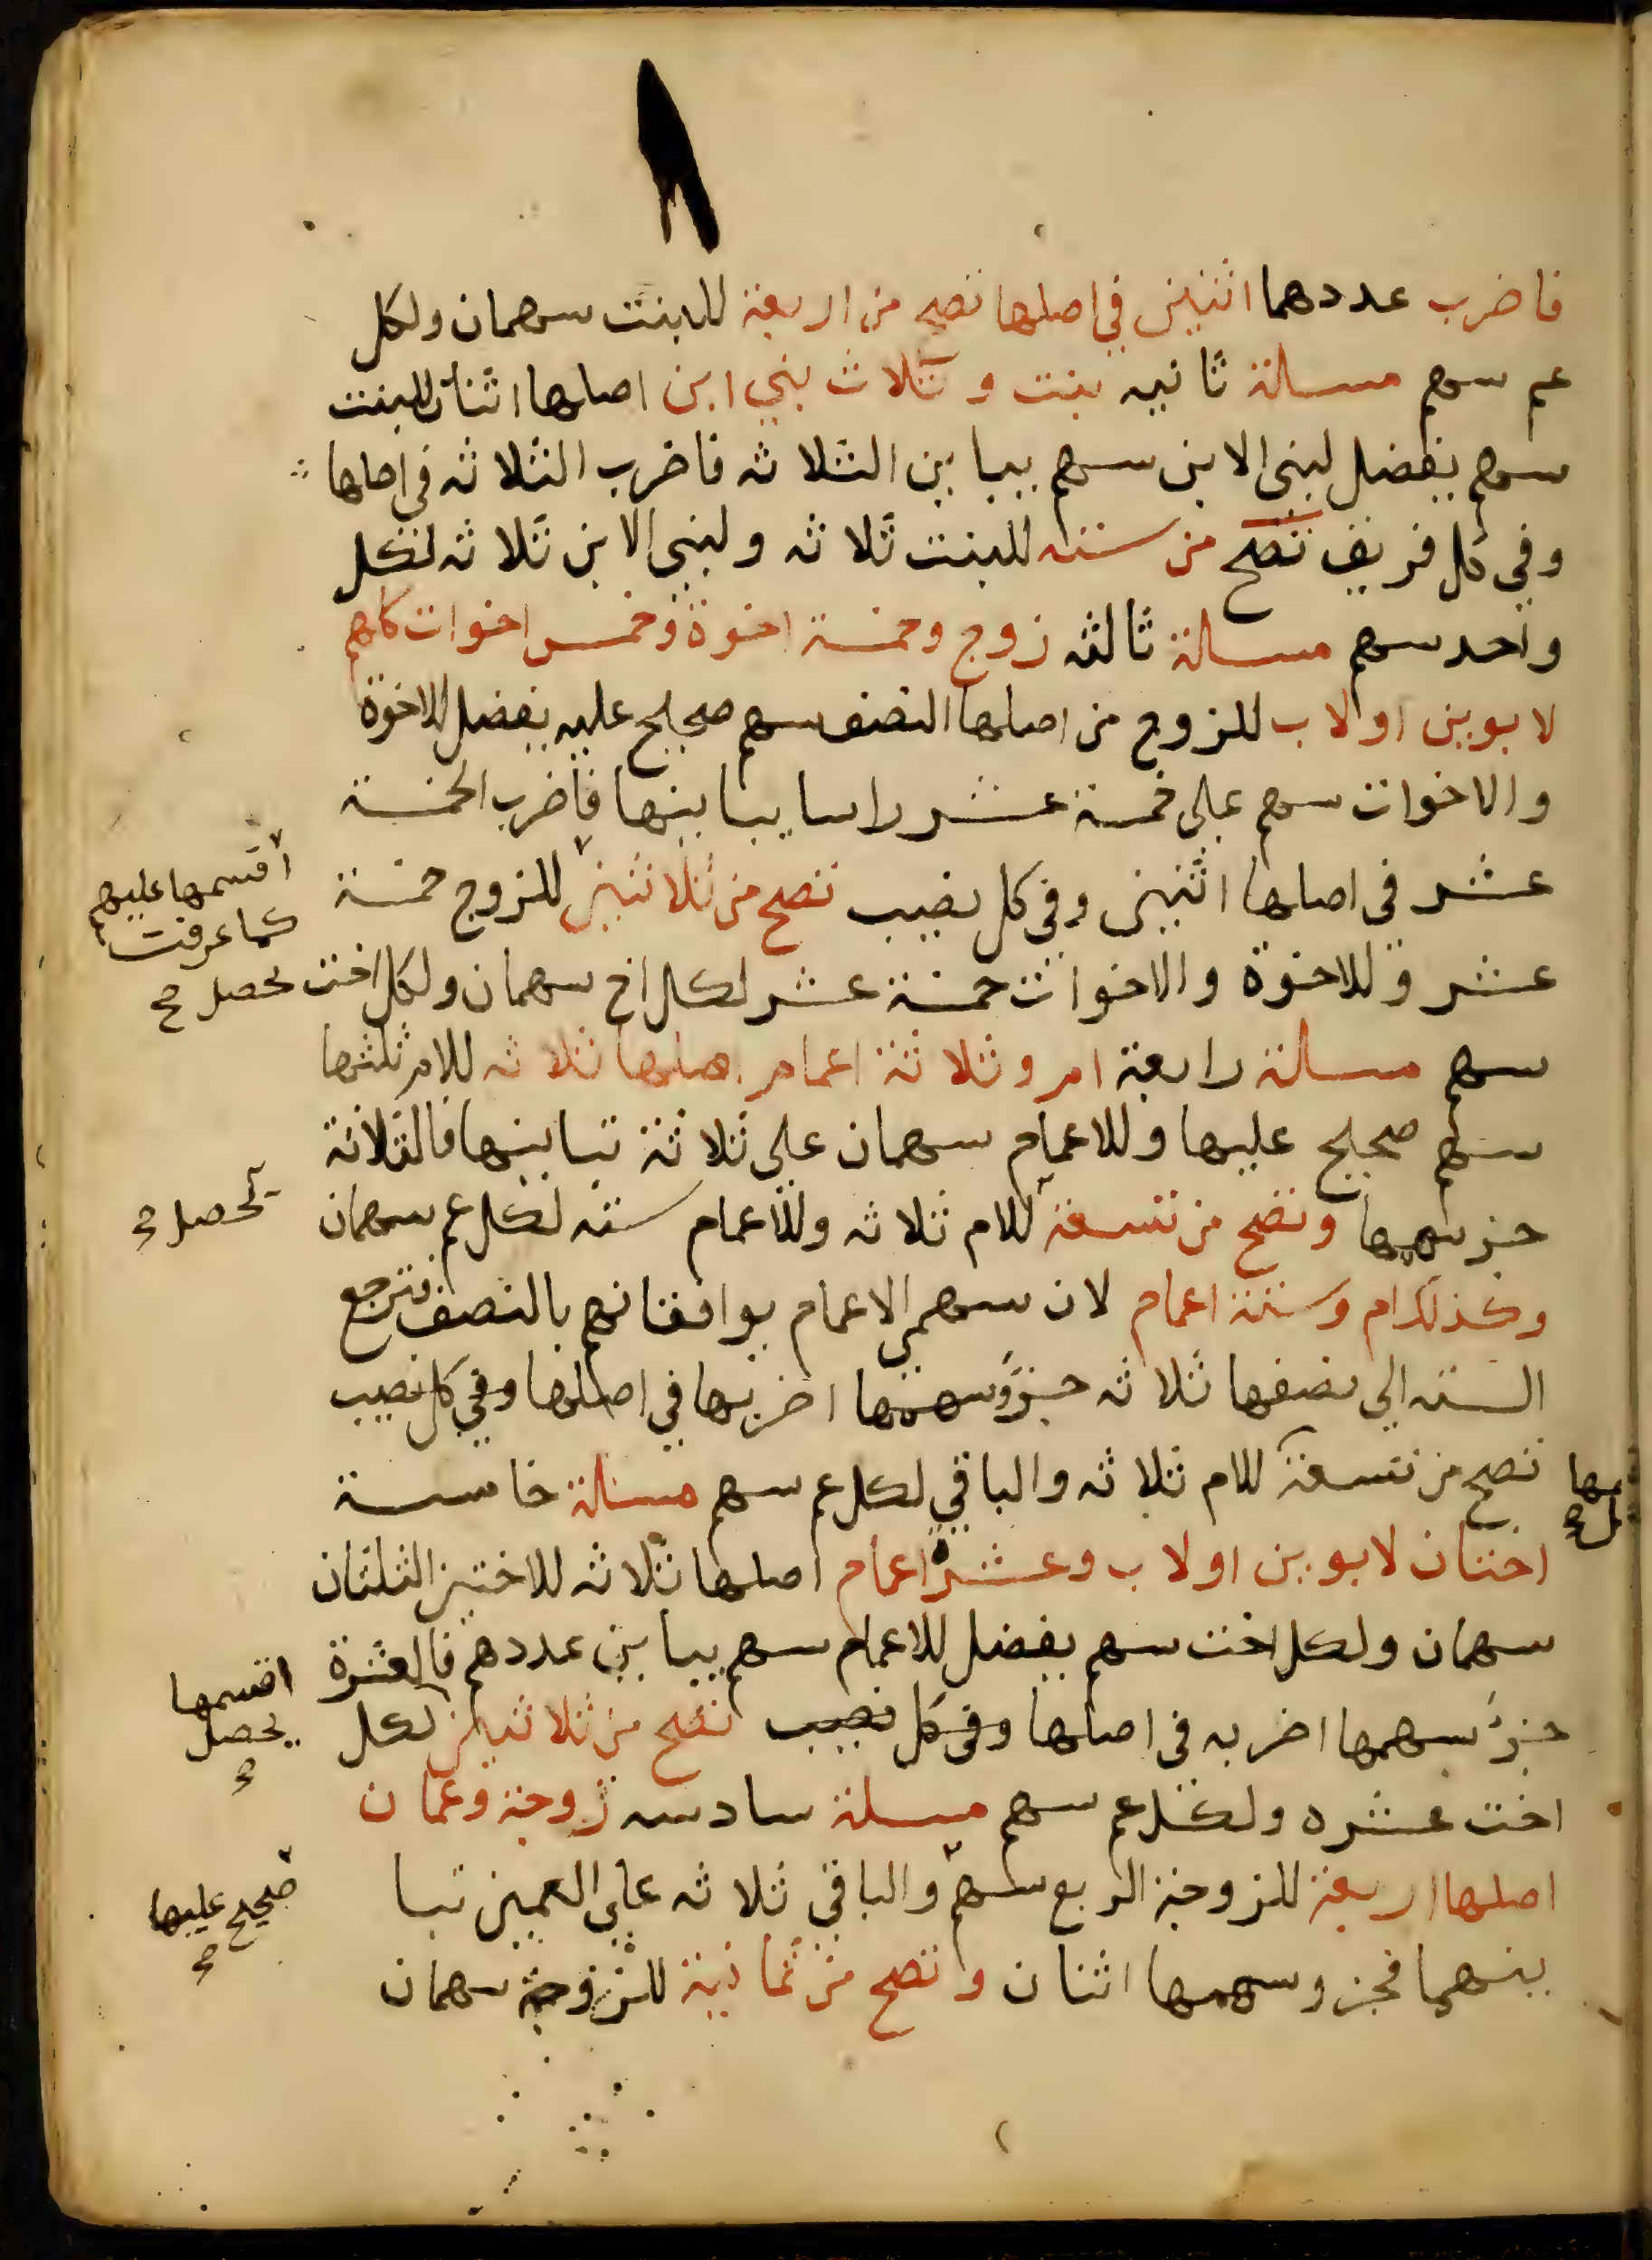 فاضرب عددهما اثنين في اصلها تصح من اربعة للبنت سهمان ولكل
عم سهم مسالة ثانيه بنت وثلاث بني ابن اصلها اثنان للبنت
سهم يفضل لبني الابن سهم يباين الثلاثه فاضرب الثلاثه في اصلها
وفي كل فريق تصح من سته للبنت ثلاثه ولبني الابن ثلاثه لكل
واحد سهم مسالة ثالثه زوج وخمسة اخوة وخمس اخوات كلهم
لابوين او لاب للزوج من اصلها النصف سهم صحيح عليه يفضل للاخوة
والاخوات سهم على خمسة عشر راسا يباينها فاضرب الخمسة
عشر في اصلها اثنين وفي كل نصيب تصح من ثلاثين للزوج خمسة
اقسمها عليهم
كما عرفت
يحصل
عشر وللاخوة والاخوات خمسة عشر لكل اخ سهمان ولكل اخت
سهم مسالة رابعة ام وثلاثة اعمام اصلها ثلاثه للام ثلثها
سهم صحيح عليها وللاعمام سهمان على ثلاثة تباينها فالثلاثة
جز سهمها وتصح من تسعة للام ثلاثه وللاعمام سته لكل عم سهمان
يحصل
وكذلك ام وستة اعمام لان سهمي الاعمام يوافقانهم بالنصف فترجع
السته الى نصفها ثلاثه جزؤ سهمها اضربها في اصلها وفي كل نصيب
تصح من تسعة للام ثلاثه والباقي لكل عم سهم مسالة خامسة
اختان لابوين او لاب وعشرة اعمام اصلها ثلاثه للاختين الثلثان
سهمان ولكل اخت سهم يفضل للاعمام سهم يباين عددهم فالعشرة
جزؤ سهمها اضربه في اصلها وفي كل نصيب تصح من ثلاثين لكل
اقسمها
يحصل
اخت عشره ولكل عم سهم مسلة سادسه زوجة وعمان
اصلها اربعة للزوجة الربع سهم والباقي ثلاثه على العمين تبا
صحيح عليها
ينهما فجزو سهمها اثنان وتصح من ثمانية للزوجة سهمان